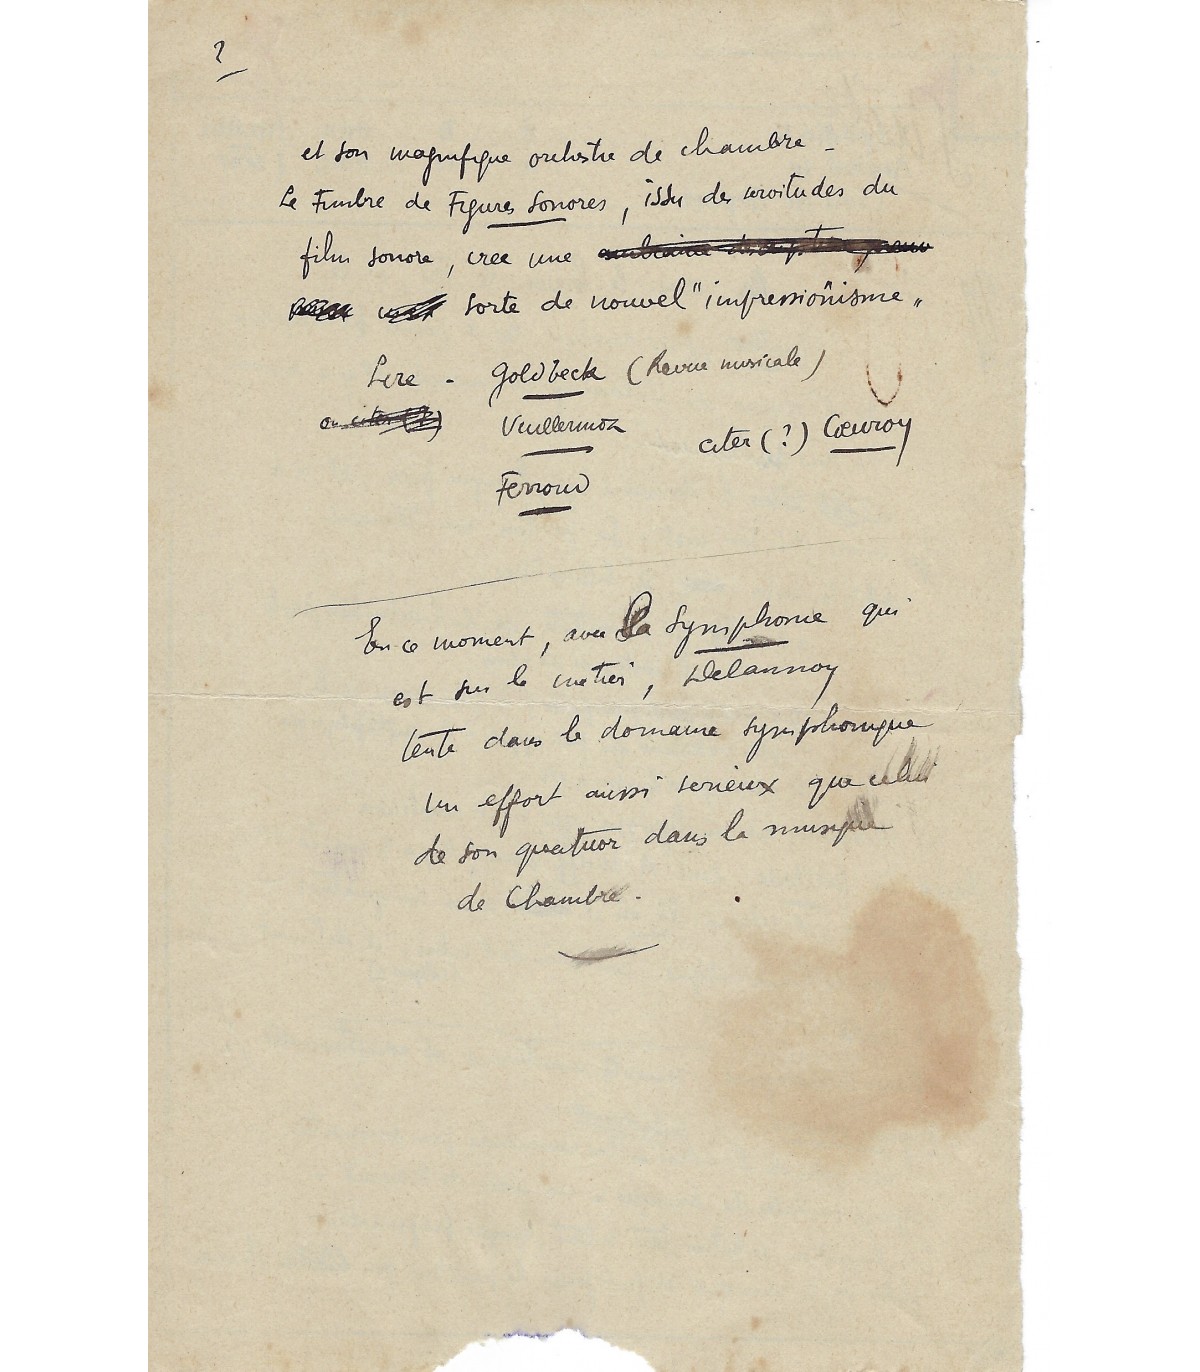 2
et son magnifique orchestre de chambre -
Le Timbre de Figures Sonores, issu des servitudes du
film sonore, crée une
sorte de nouvel "impressionisme"
Lire - Goldbeck (Revue musicale)
ou citer (?) Vuillermoz
citer (?) Cœuroy
Ferroud
En ce moment, avec la Symphonie qui
est sur le métier, Delannoy
tente dans le domaine symphonique
un effort aussi sérieux que celui
de son quatuor dans la musique
de Chambre.